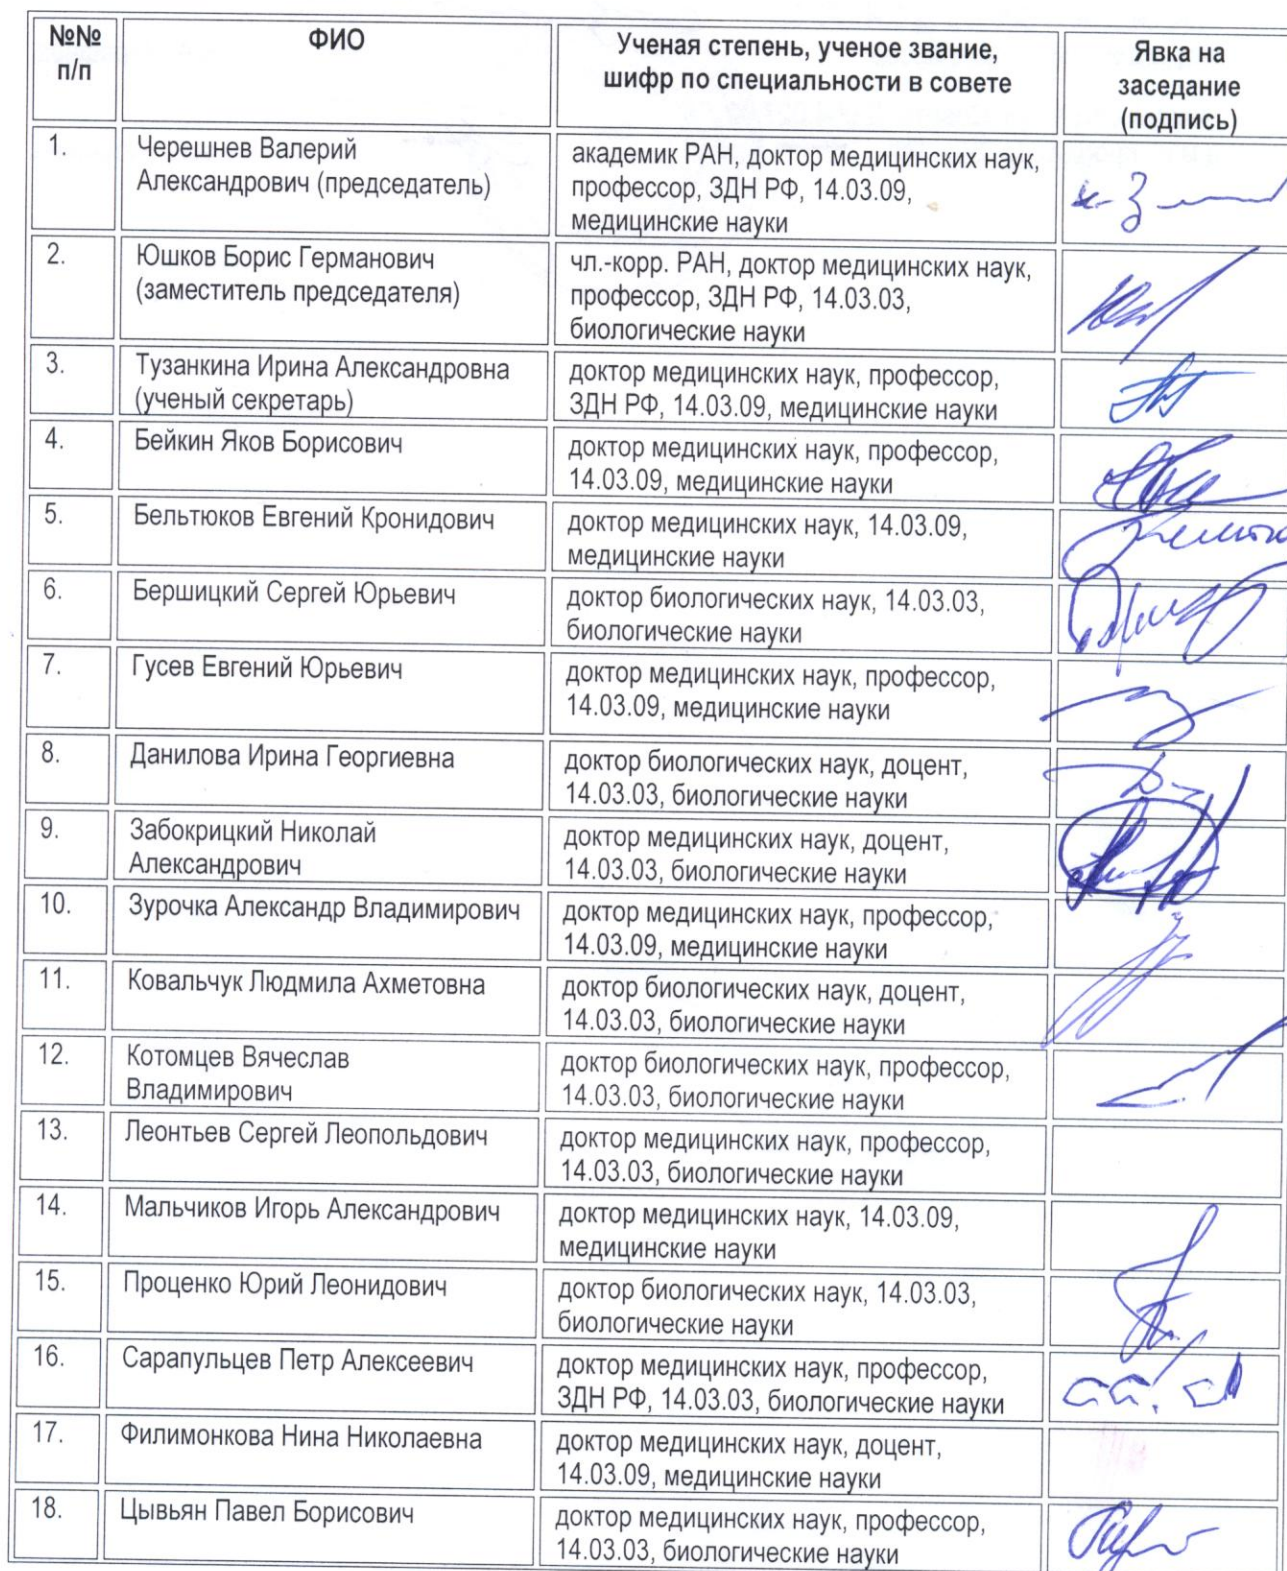 №№ ФИО Ученая степень, ученое звание, Явка на
п/п шифр по специальности в совете заседание
(подпись)
1. Черешнев Валерий академик РАН, доктор медицинских наук,
Александрович (председатель) профессор, ЗДН РФ, 14.03.09,
медицинские науки
2. Юшков Борис Германович чл.-корр. РАН, доктор медицинских наук,
(заместитель председателя) профессор, ЗДН РФ, 14.03.03,
биологические науки
3. Тузанкина Ирина Александровна доктор медицинских наук, профессор,
(ученый секретарь) ЗДН РФ, 14.03.09, медицинские науки
4. Бейкин Яков Борисович доктор медицинских наук, профессор,
14.03.09, медицинские науки
5. Бельтюков Евгений Кронидович доктор медицинских наук, 14.03.09,
медицинские науки
6. Бершицкий Сергей Юрьевич доктор биологических наук, 14.03.03,
биологические науки
7. Гусев Евгений Юрьевич доктор медицинских наук, профессор,
14.03.09, медицинские науки
8. Данилова Ирина Георгиевна доктор биологических наук, доцент,
14.03.03, биологические науки
9. Забокрицкий Николай доктор медицинских наук, доцент,
Александрович 14.03.03, биологические науки
10. Зурочка Александр Владимирович доктор медицинских наук, профессор,
14.03.09, медицинские науки
11. Ковальчук Людмила Ахметовна доктор биологических наук, доцент,
14.03.03, биологические науки
12. Котомцев Вячеслав доктор биологических наук, профессор,
Владимирович 14.03.03, биологические науки
13. Леонтьев Сергей Леопольдович доктор медицинских наук, профессор,
14.03.03, биологические науки
14. Мальчиков Игорь Александрович доктор медицинских наук, 14.03.09,
медицинские науки
15. Проценко Юрий Леонидович доктор биологических наук, 14.03.03,
биологические науки
16. Сарапульцев Петр Алексеевич доктор медицинских наук, профессор,
ЗДН РФ, 14.03.03, биологические науки
17. Филимонкова Нина Николаевна доктор медицинских наук, доцент,
14.03.09, медицинские науки
18. Цывьян Павел Борисович доктор медицинских наук, профессор,
14.03.03, биологические науки